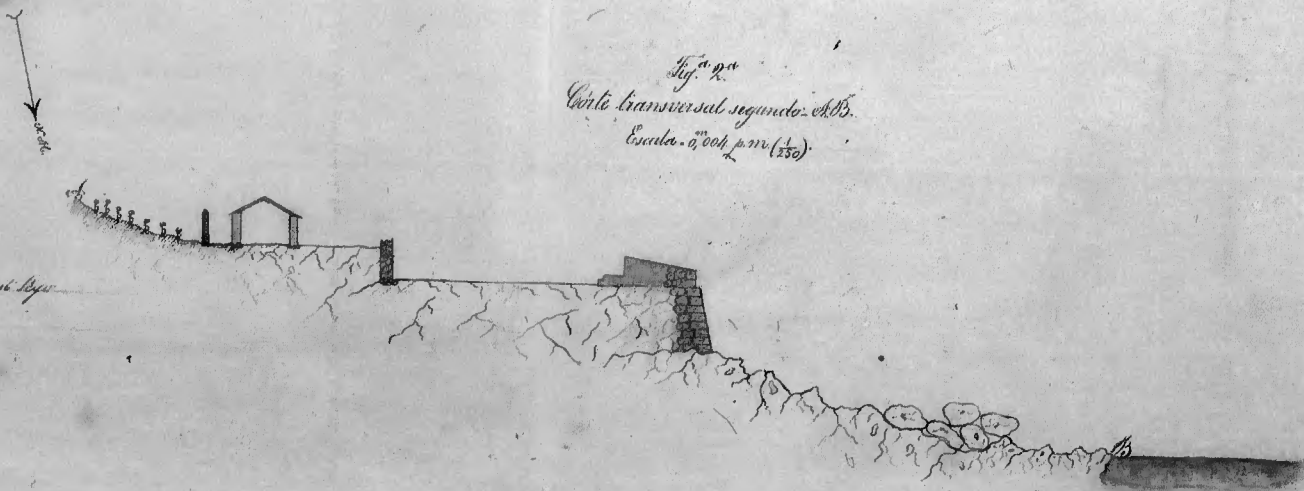 N.M.
Fig.ª 2.ª
Córte transversal segundo - AB.
Escala - 0,ᵐ004 p.m. (1/250).
A
B